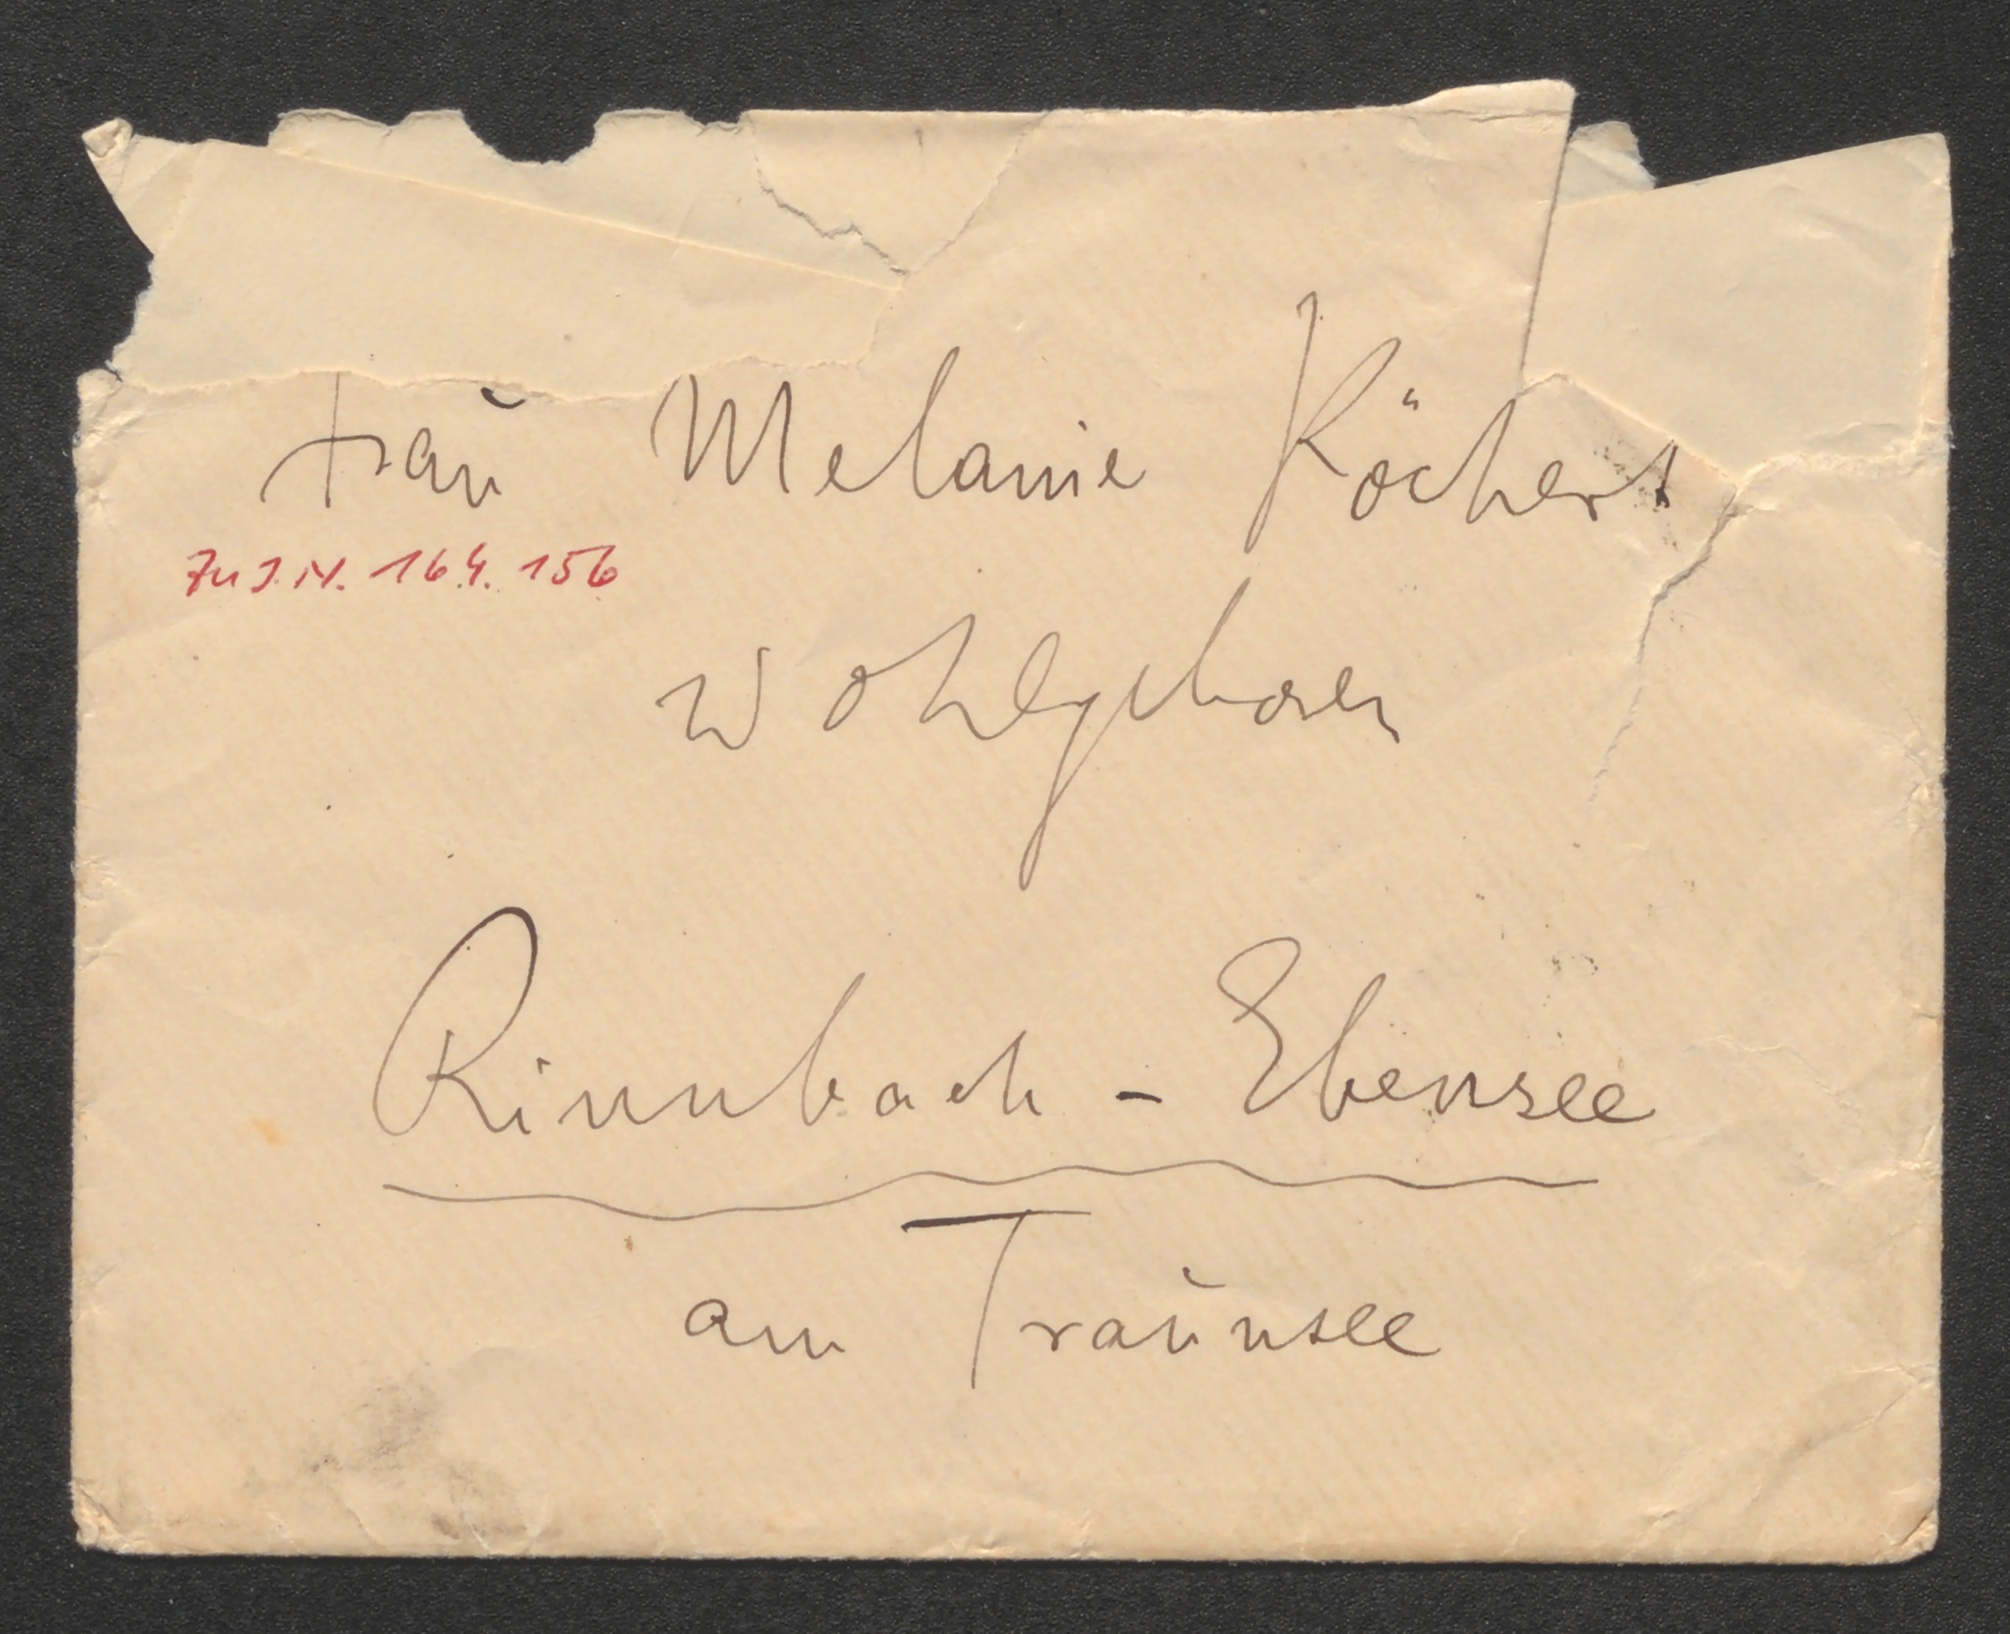 Frau Melanie Köchert
Zu I.N. 164.156
Wohlgeboren
Rinnbach - Ebensee
am Traunsee